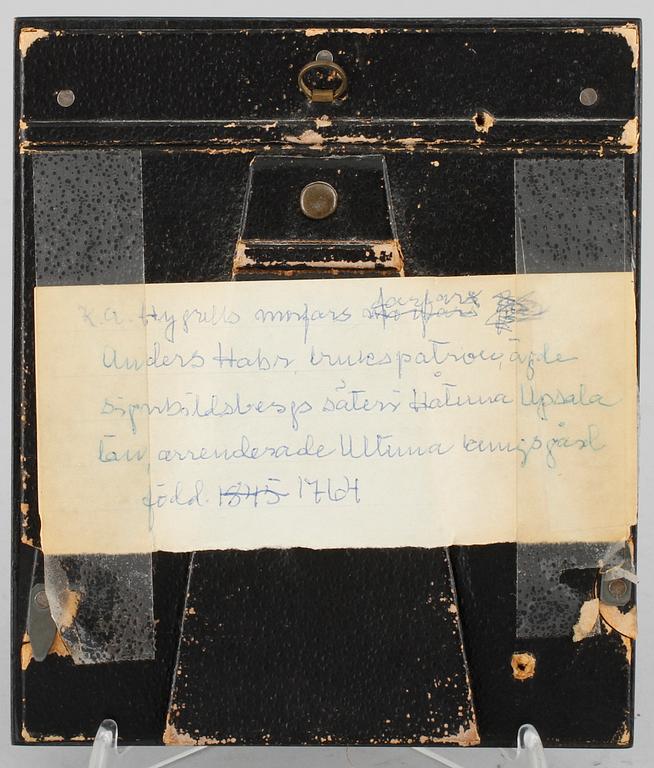 K.A. Hygrells morfars farfars
Anders Habr, brukspatron, ägde
Signhildsbergs säteri Håtuna Upsala
län, arrenderade Ultuna kungsgård
född 1845 1764